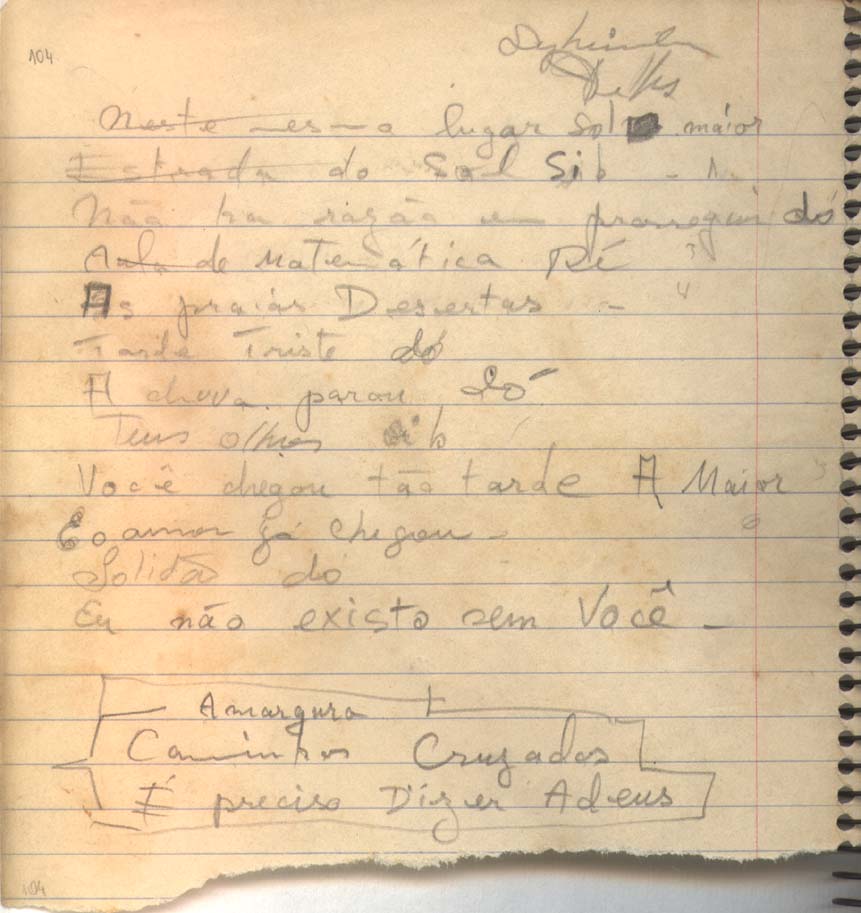 104
Neste mesmo lugar Sol maior
Estrada do Sol Sib -
Não ha razão prosseguir dó
Aula de Matemática Ré 3
As praias Desertas - 4
Tarde Triste dó
A chuva parou Dó
Teus olhos b
Você chegou tão tarde A Maior
E o amor já chegou - 6
Solidão dó
Eu não existo sem Você -
Amargura
Caminhos Cruzados
É preciso Dizer Adeus
104